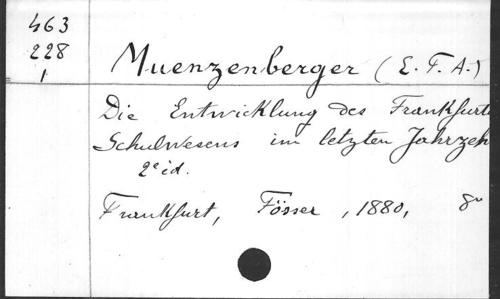 463
228
1
Muenzenberger (E. F. A.)
Die Entwicklung des Frankfurte
Schulwesens im letzten Jahrzeh
2e id.
Frankfurt, Fösser, 1880, 8°